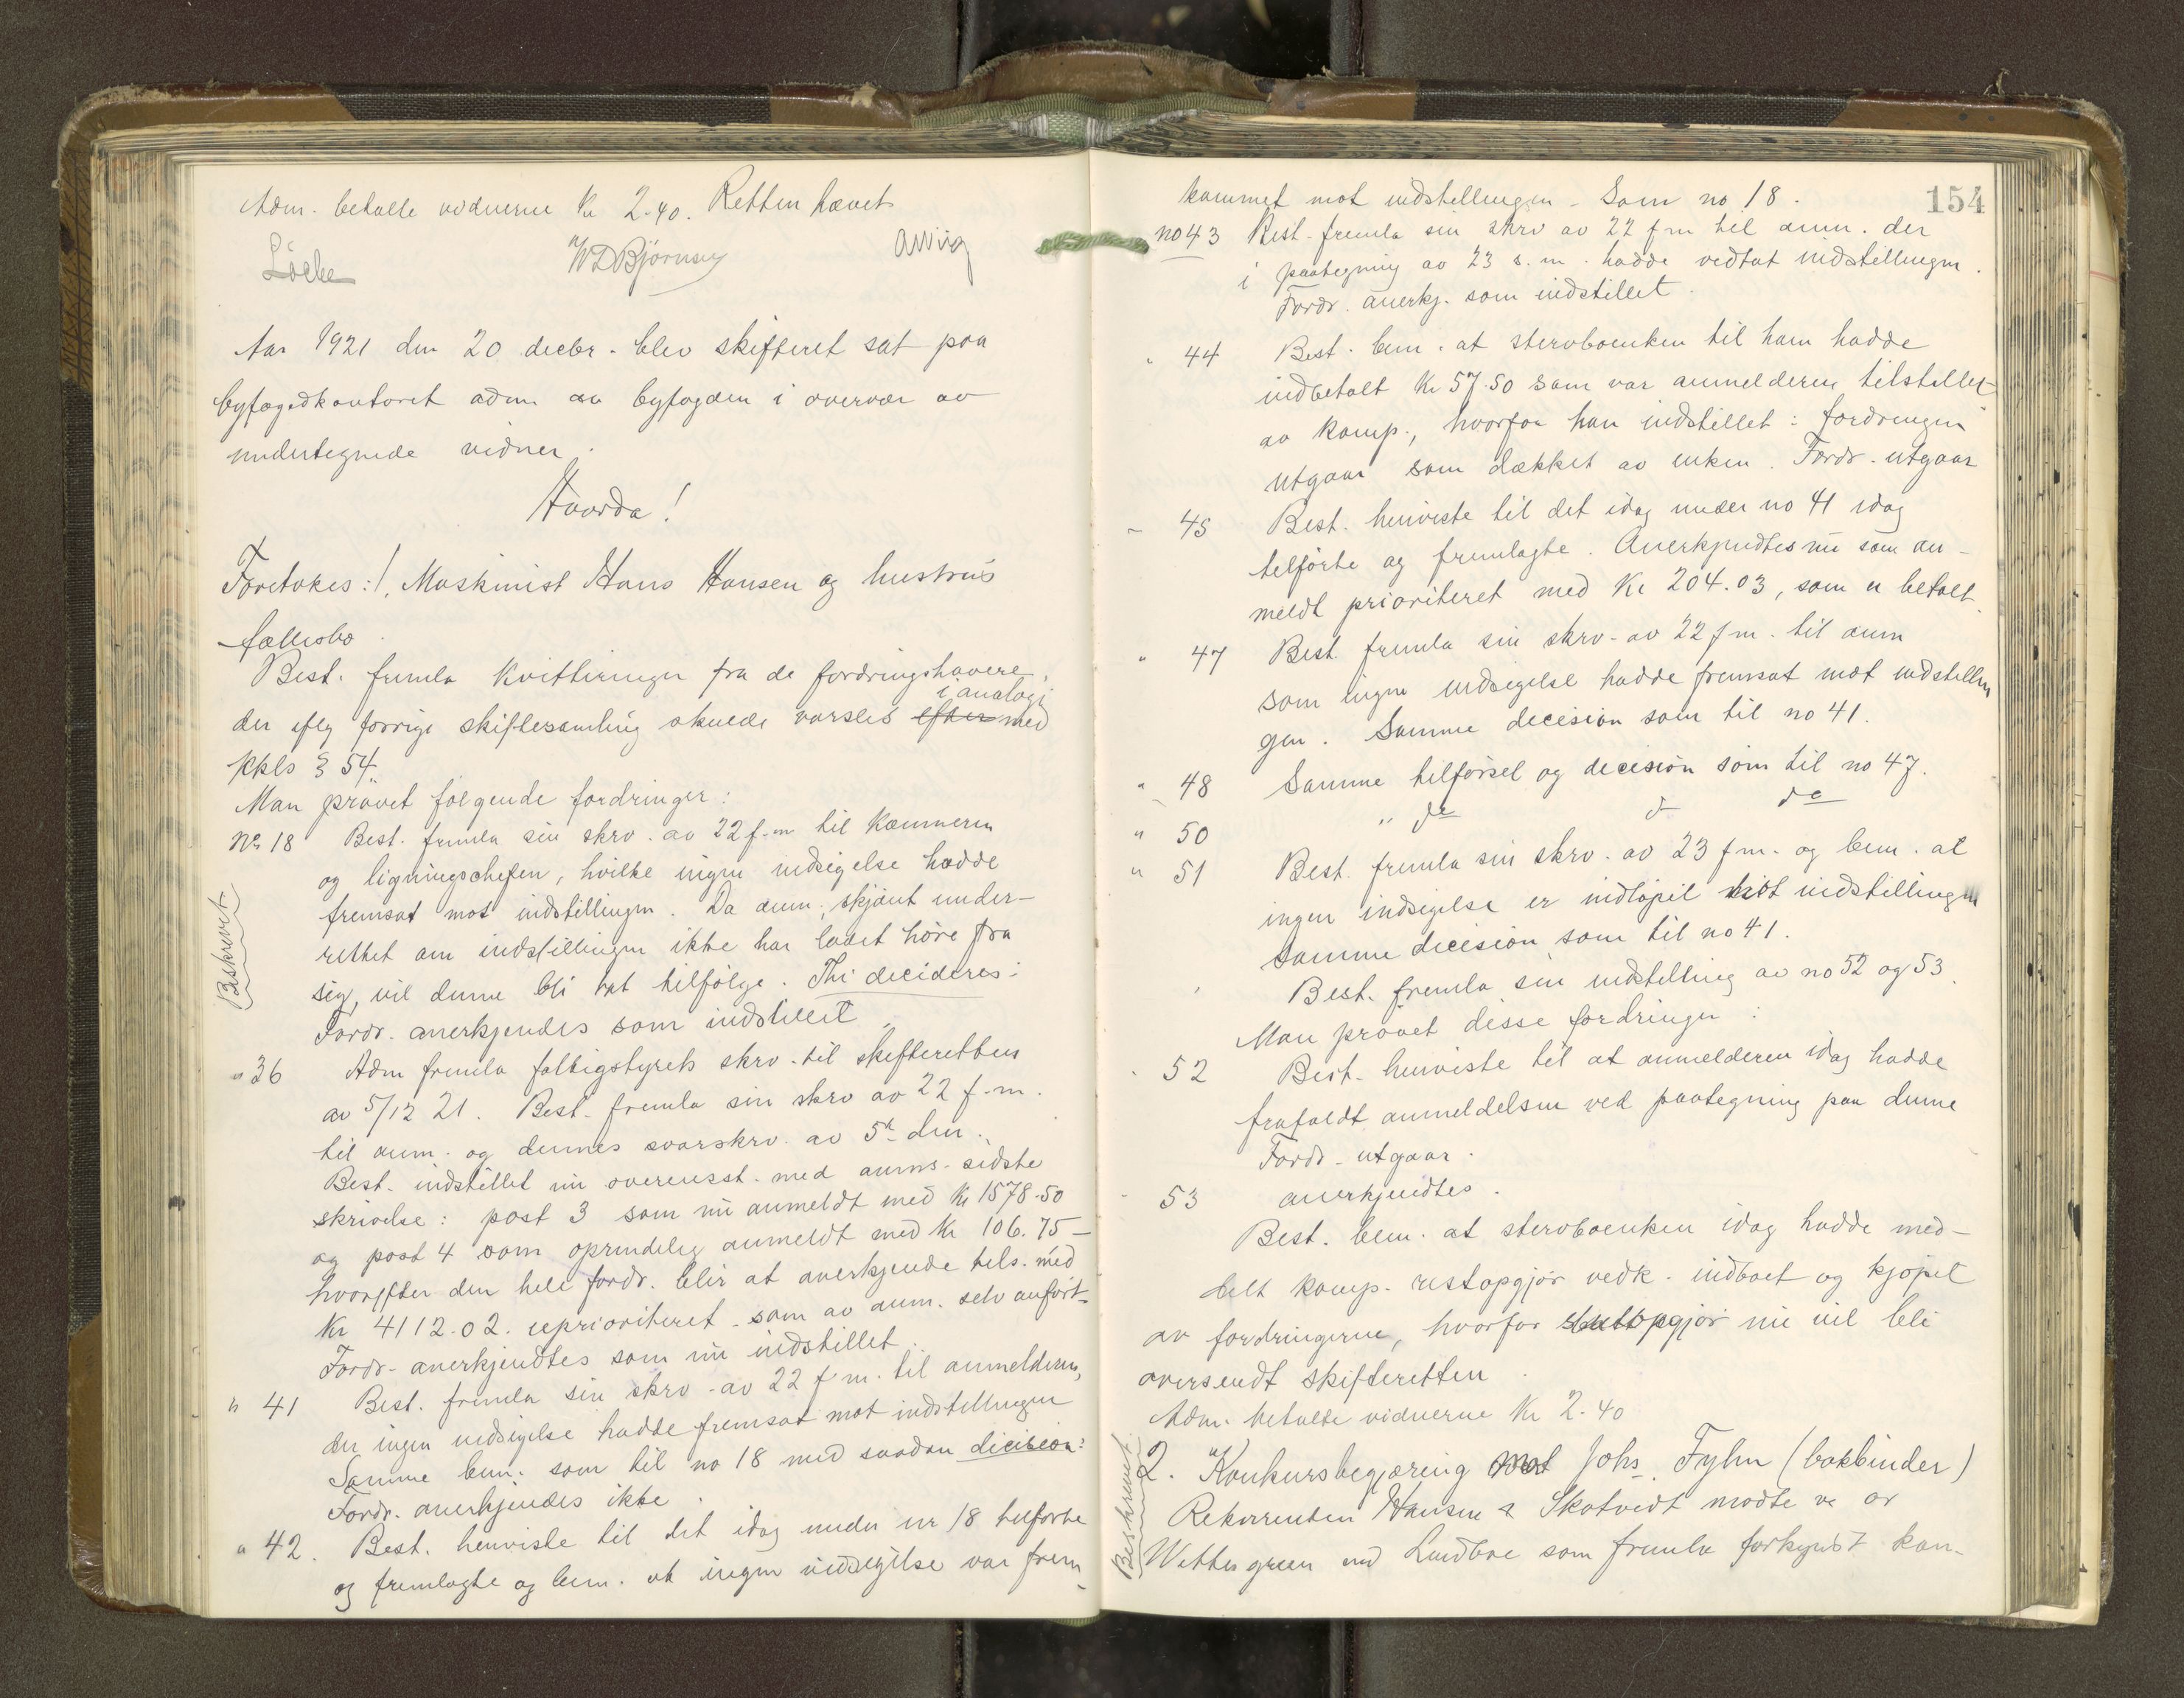 Adm. betalte vidnerne Kr 2.40. Retten hævet
Löcke W D Bjørnsen
Aar 1921 den 20 decbr. blev skifteret sat paa
byfogedkontoret adm av byfogden i overvær av
undertegnede vidner.
Hvorda!
Foretokes: 1, Maskinist Hans Hansen og hustrus
fællesbo.
Best. fremla kvitteringer fra de fordringshavere,
i analogi
der iflg forrige skiftesamling skulde varsles efter med
kkls § 54.
Man prøvet følgende fordringer:
No 18 Best. fremla sin skrv. av 22 f.m til kæmneren
og ligningschefen, hvilke ingen indsigelse hadde
fremsat mot indstillingen. Da anm., skjønt under-
rettet om indstillingen ikke har ladet høre fra
sig, vil denne bli tat tilfølge. Thi decideres:
Fordr. anerkjendes som indstillet.
Beskrevet
" 36 Adm fremla fattigstyrets skrv. til skifteretten
av 5/12 21. Best. fremla sin skrv av 22 f.m.
til anm. og dennes svarskrv. av 5te dm.
Best. indstillet nu overensst. med anms. sidste
skrivelse: post 3 som nu anmeldt med Kr 1578.50
og post 4 som oprindelig anmeldt med Kr 106.75 –
hvorefter den hele fordr. blir at anerkjende tils. med
Kr 4112.02. uprioriteret som av anm. selv anført.
Fordr. anerkjendtes som nu indstillet.
" 41 Best. fremla sin skrv. av 22 f.m. til anmelderen,
der ingen indsigelse hadde fremsat mot indstillingen
Samme bem. som til no 18 med saadan decision:
Fordr. anerkjendes ikke.
" 42. Best. henviste til det idag under nr 18 tilførte
og fremlagte og bem. at ingen indsigelse var frem-
154
kommet mot indstillingen. Som no 18.
no 43 Best. fremla sin skrv av 22 f m til anm. der
i paategning av 23 s. m. hadde vedtat indstillingen.
Fordr. anerkj. som indstillet.
" 44 Best. bem. at stervboenken til ham hadde
indbetalt Kr 57.50 som var anmelderen tilstillet
av komp., hvorfor han indstillet: fordringen
utgaar som dækket av enken. Fordr. utgaar
" 45 Best. henviste til det idag under no 41 idag
tilførte og fremlagte. Anerkjendtes nu som an-
meldt prioriteret med Kr 204.03, som er betalt.
" 47 Best. fremla sin skrv. av 22 f m. til anm
som ingen indsigelse hadde fremsat mot indstillin
gen. Samme decision som til no 41.
" 48 Samme tilførsel og decision som til no 47.
" 50 " do do do
" 51 Best. fremla sin skrv. av 23 f m. og bem. at
ingen indsigelse er indløpet mot indstillingen
Samme decision som til no 41.
Best. fremla sin indstilling av no 52 og 53.
Man prøvet disse fordringer:
" 52 Best. henviste til at anmelderen idag hadde
frafaldt anmeldelsen ved paategning paa denne
Fordr. utgaar.
" 53 anerkjendtes.
Best. bem. at stervboenken idag hadde med-
delt komp. restopgjør vedk. indboet og kjøpet
av fordringerne, hvorfor sluttopgjør nu vil bli
oversendt skifteretten.
Adm. betalte vidnerne Kr 2.40
Beskrevet.
2. Konkursbegjæring mot Johs. Fyhn (bokbinder)
Rekvirenten Hansen & Skotvedt møtte ve or
Wettergreen ved Lundboe som fremla forkyndt kon-